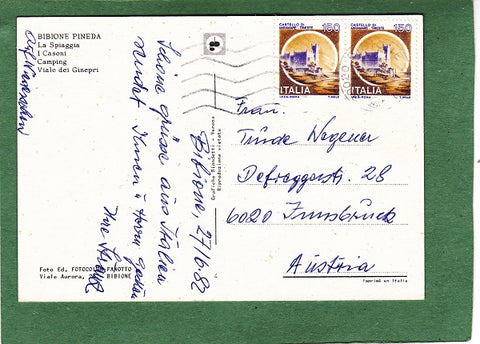 BIBIONE PINEDA
La Spiaggia
I Casoni
Camping
Viale dei Ginepri
Auf Wiedersehn
Schöne Grüsse aus Italien
sendet Ihnen u. Herrn
Ihre
Bibione, 27/6.82
Foto Ed. FOTOCOLOR FANOTTO
Viale Aurora, BIBIONE
Grafiche Biondetti - Verona
Riproduzione vietata
CASTELLO DI MIRAMARE TRIESTE
150
ITALIA
CASTELLO DI MIRAMARE TRIESTE
150
ITALIA
Frau
Wegener
Defreggerstr. 28
6020 Innsbruck
Austria
Imprimé en Italie